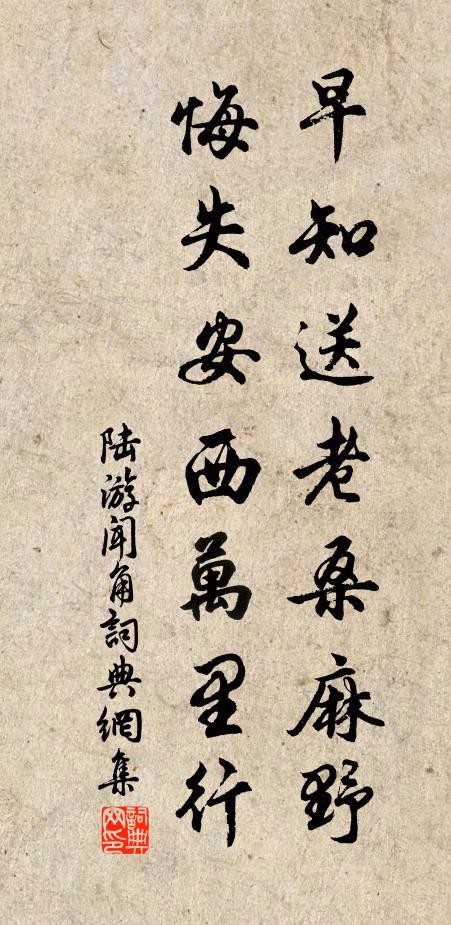 早知送老桑麻野
悔失安西萬里行
陆游闻角詞典網集
詞典
网印